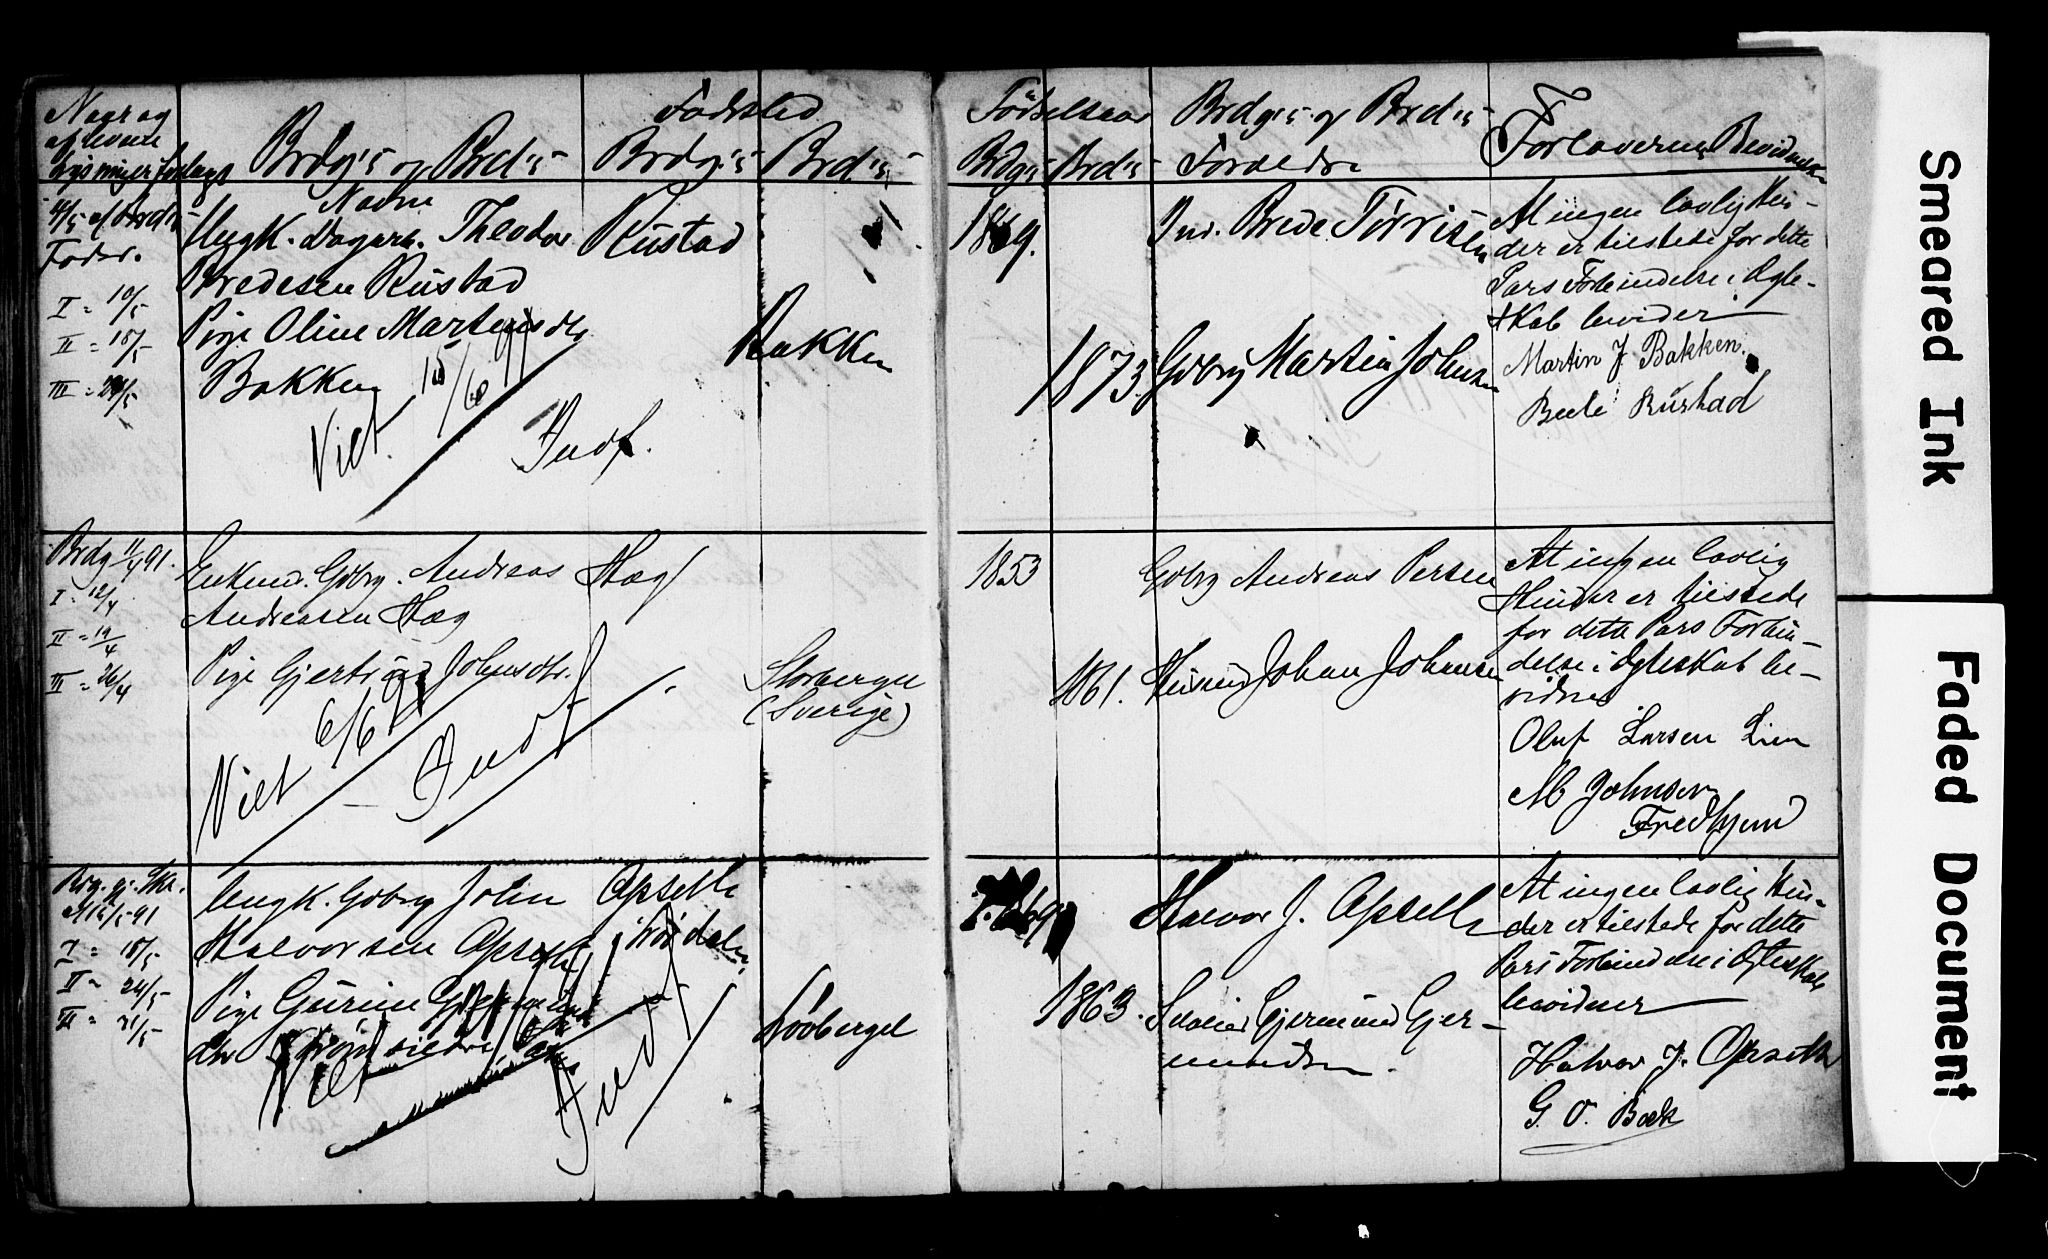 Naar og
af hvem
Lysninger forlangt
Brdg's og Brd's
Navn
Fødested
Brdg's
Brd's
Fødselsaar
Brdg's
Brd's
Brdg's og Brd's
Forældre
Forlovernes Bevidnelse
4/5 af Brd's
Fader.
I = 10/5
II = 18/5
III = 24/5
Ungk. Dagarb. Theodor
Bredesen Rustad
Pige Oline Martinsdtr
Bakken
Viet 15/6 91
Indf.
Rustad
Bakken
1869.
1873.
Ind. Brede Torrisen
Gbrg Martin Johnsen
At ingen lovlig Hin-
der er tilstede for dette
Pars Forbindelse i Ægte-
skab bevidner
Martin J Bakken.
Brede Rustad
Brdg 11/4 91.
I = 12/4
II = 19/4
III = 26/4
Enkem. Gbrg. Andreas
Andreassen Hæg
Pige Gjertrud Johnsdtr.
Viet 6/6 91
Indf
Hæg
Storberget
(Sverige)
1853
1861.
Gbrg Andreas Persen
Husmd Johan Johnsen
At ingen lovlig
Hinder er tilstede
for dette Pars Forbin-
delse i Ægteskab be-
vidnes
Oluf Larsen Lien
M Johnsen
Fredhjem
Brg. gj. Skr.
af 15/5 91
I = 18/5
II = 24/5
III = 31/5
Ungk. Gbrg John
Halvorsen Opseth
Pige Gurine
dtr
Viet
Indf
Opseth
Løvberget
1869
1863.
Halvor J. Opseth
Gjermund Gjer-
mundsen.
At ingen lovlig Hin-
der er tilstede for dette
Pars Forbindelse i Ægteskab
bevidner
Halvor J. Opseth
G. O. Bæk
Smeared Ink
Faded Document